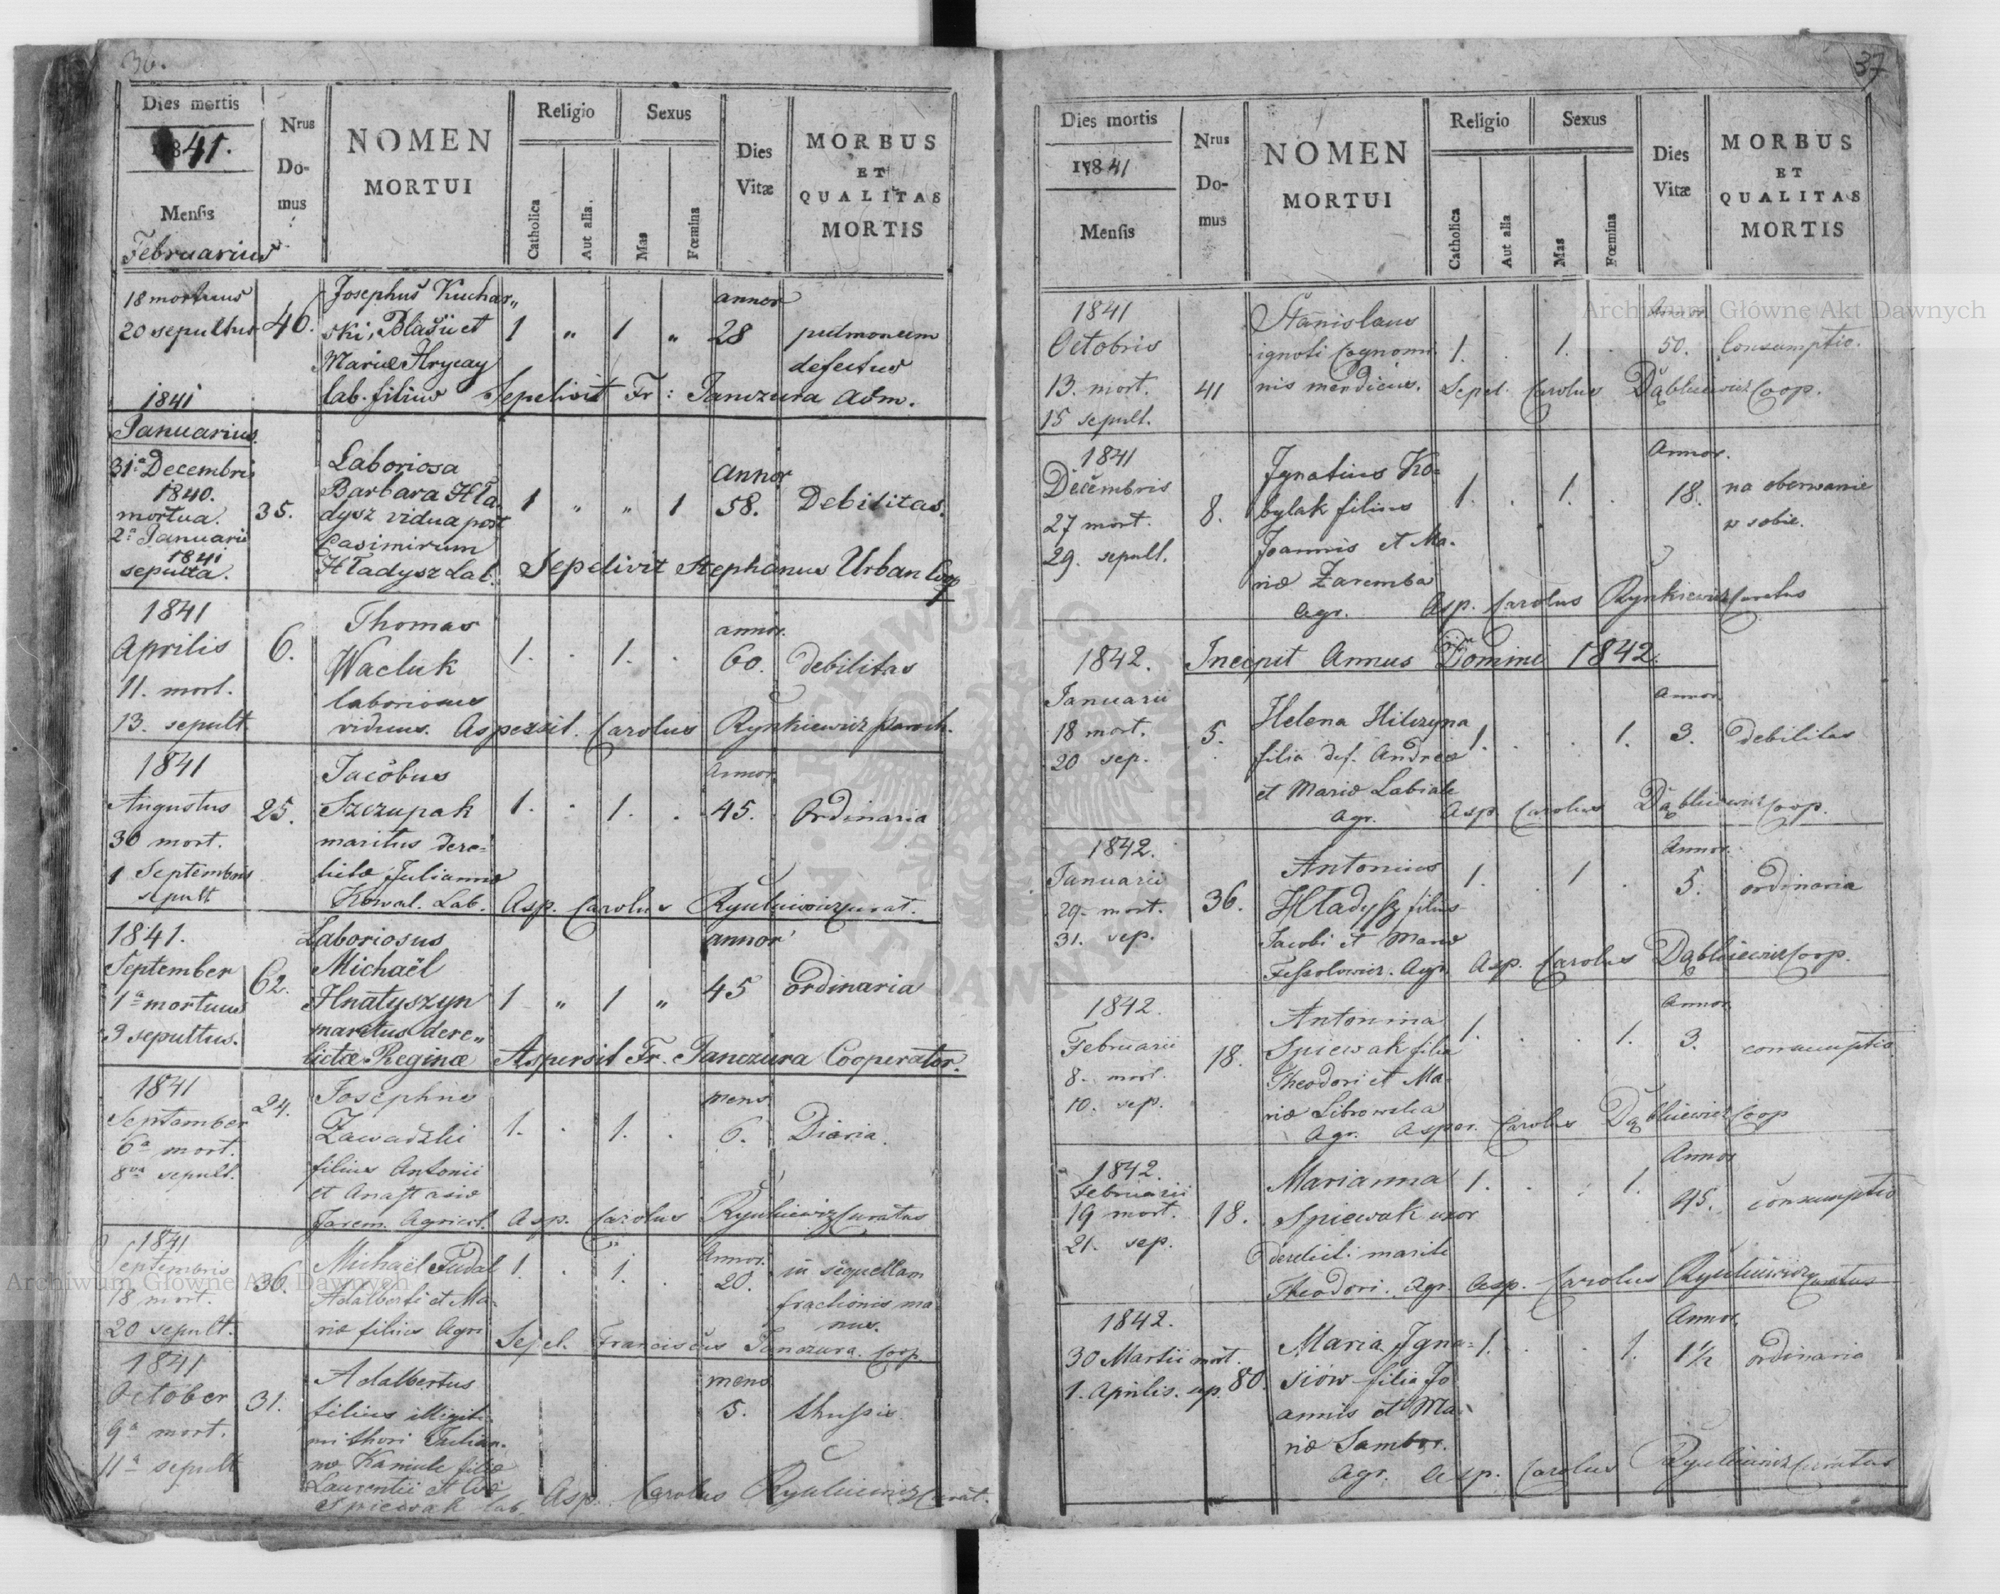 36.
Dies mortis
1841.
Mensis
Februarius
Nrus
Do-
mus
NOMEN
MORTUI
Religio
Catholica
Aut alia.
Sexus
Mas
Fœmina
Dies
Vitæ
MORBUS
ET
QUALITAS
MORTIS
18 mortuus
20 sepultus
46.
Josephus Kuchar„
ski, Blasii et
Mariæ Hrycay
lab. filius
1 „ 1 „
annor
28
pulmonum
defectus
Sepelivit Fr: Janczura Adm.
1841
Januarius
31a Decembris
1840.
mortua.
2a Januarii
1841
sepulta.
35.
Laboriosa
Barbara Hła
dysz vidua post
Casimirum
Hładysz Lab.
1 „ „ 1
Annor
58.
Debilitas.
Sepelivit Stephanus Urban Coop
1841
Aprilis
11. mort.
13. sepult
6.
Thomas
Wacluk
laboriosus
viduus.
1. . 1. .
annor.
60.
debilitas
Aspersit. Carolus Rynkiewicz Paroch.
1841
Augustus
30 mort.
1 Septembris
sepult
25.
Jacobus
Szczupak
maritus dere-
lictæ Juliannæ
Kowal. Lab.
1. . 1. .
Annor
45.
Ordinaria
Asp. Carolus Rynkiewicz Curat.
1841.
September
1a mortuus
3 sepultus.
62.
Laboriosus
Michaël
Hnatyszyn
maritus dere„
lictæ Reginæ
1 „ 1 „
annor
45
Ordinaria
Aspersit Fr. Janczura Cooperator.
1841
September
6a mort.
8va sepult.
24.
Josephus
Zawadzki
filius Antonii
et Anastasiæ
Jarem. Agricol.
1. . 1. .
mens
6.
Diaria.
Asp. Carolus Rynkiewicz Curatus
1841
Septembris
18 mort.
20 sepult.
36.
Michaël Fudal
Adalberti et Ma-
riæ filius Agr.
1. . 1. .
Annor.
20.
in sequellam
fractionis ma-
nus.
Sepel. Franciscus Janczura. Coop.
1841
October
9a mort.
11a sepult
31.
Adalbertus
filius illegiti-
mi thori Julian-
næ Kaniuk filiæ
Laurentii et Evæ
Spiewak lab.
mens
5.
thussis
Asp. Carolus Rynkiewicz Curat.
37
Dies mortis
1841
Mensis
Nrus
Do-
mus
NOMEN
MORTUI
Religio
Catholica
Aut alia
Sexus
Mas
Fœmina
Dies
Vitæ
MORBUS
ET
QUALITAS
MORTIS
1841
Octobris
13. mort.
15 sepult.
41
Stanislaus
ignoti cognomi
nis mendicus.
1. . 1. .
Annor
50.
Consumptio.
Sepel. Carolus Dąbkiewicz Coop.
1841
Decembris
27 mort.
29. sepult.
8.
Ignatius Ko-
bylak filius
Joannis et Ma-
riæ Zaremba
Agr.
1. . 1. .
Annor.
18.
na oberwanie
w sobie.
Asp. Carolus Rynkiewicz Curatus
1842. Incepit Annus Domini 1842.
Januarii
18 mort.
20 sep.
5.
Helena Hilczyna
filia def. Andreæ
et Mariæ Labiak
Agr.
1. . . 1.
Annor
3.
debilitas
Asp. Carolus Dąbkiewicz Coop.
1842.
Januarii
29. mort.
31. sep.
36.
Antonius
Hładysz filius
Jacobi et Mariæ
Agr.
1. . 1 .
Annor.
5.
ordinaria
Asp. Carolus Dąbkiewicz Coop.
1842.
Februarii
8. mort.
10. sep.
18.
Antonina
Spiewak filia
Theodori et Ma-
riæ Librowska
Agr.
1. . . 1.
Annor
3.
consumptio
Asper. Carolus Dąbkiewicz Coop
1842.
Februarii
19 mort.
21. sep.
18.
Marianna
Spiewak uxor
derelicti mariti
Theodori. Agr.
1. . . 1.
Annor
45.
consumptio
Asp. Carolus Rynkiewicz Curatus
1842.
30 Martii mort.
1. Aprilis. sep.
80.
Maria Igna-
siów filia Jo
annis et Ma-
riæ Sambor.
Agr.
1. . . 1.
Annor.
1 1/2
ordinaria
Asp. Carolus Rynkiewicz Curatus
Archiwum Główne Akt Dawnych
Archiwum Główne Akt Dawnych
ARCHIWUM GŁÓWNE AKT DAWNYCH